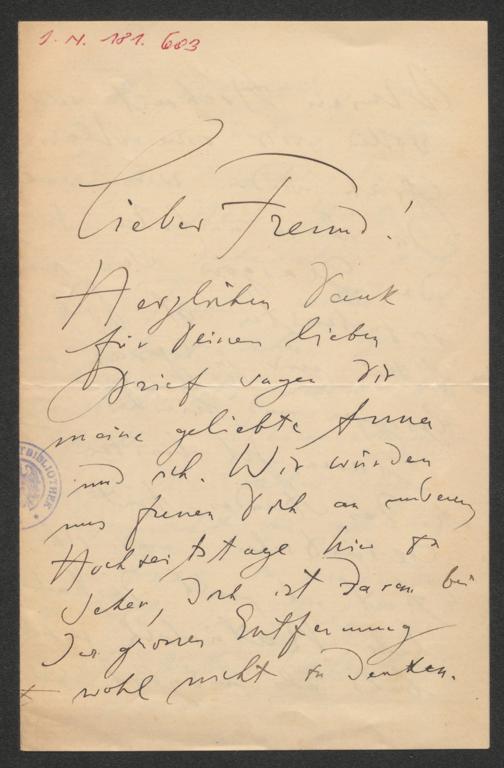 I. N. 181. 683
Lieber Freund!
Herzlichen Dank
für Deinen lieben
Brief sagen Dir
meine geliebte Anna
und ich. Wir würden
uns freuen Dich an unserem
Hochzeitstage hier zu
sehen, doch ist daran bei
der grossen Entfernung
wohl nicht zu denken.
TBIBLIOTHEK